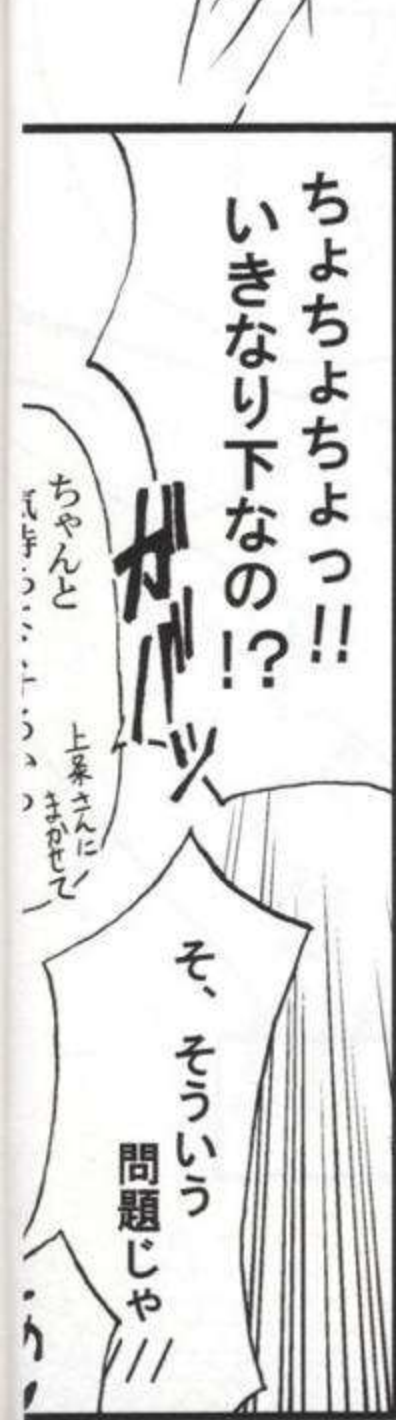 ちょちょちょっ!!
いきなり下なの!?
ガバッ
ちゃんと
上条さんに
まかせて
そ、そういう
問題じゃ